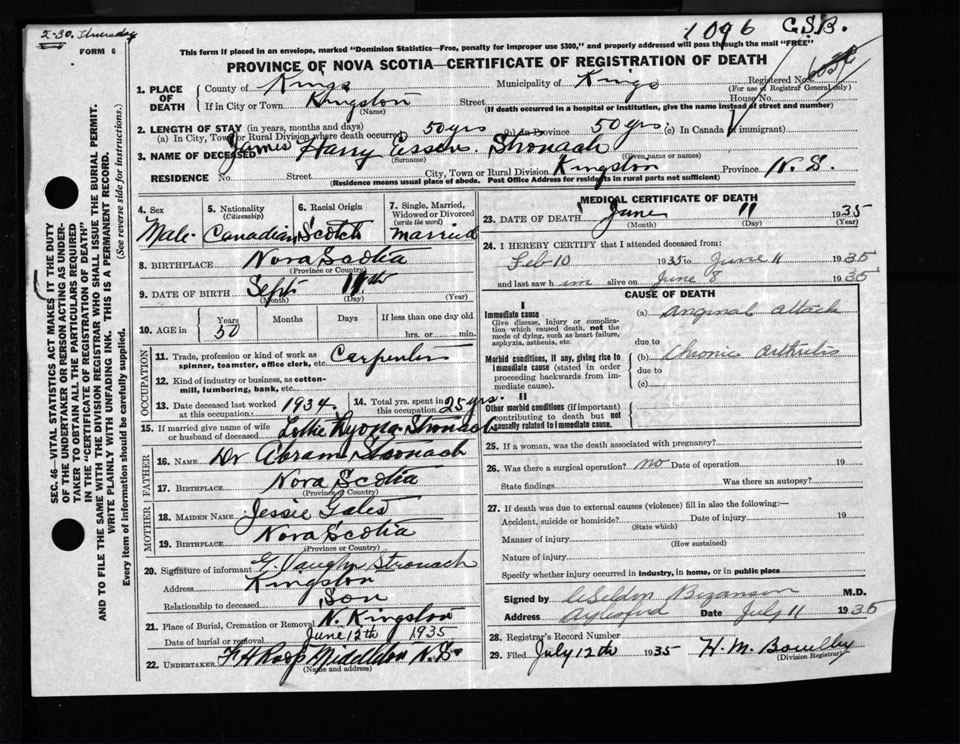 2-30. Thursday
1096 C.S.B.
FORM 6
This form if placed in an envelope, marked "Dominion Statistics—Free, penalty for improper use $300," and properly addressed will pass through the mail "FREE"
PROVINCE OF NOVA SCOTIA—CERTIFICATE OF REGISTRATION OF DEATH
1. PLACE OF DEATH County of Kings Municipality of Kings Registered No.
(For use of Registrar General only)
If in City or Town Kingston Street House No.
(Name) (If death occurred in a hospital or institution, give the name instead of street and number)
2. LENGTH OF STAY (in years, months and days)
(a) In City, Town or Rural Division where death occurred 50 yrs (b) In Province 50 yrs. (c) In Canada (if immigrant)
3. NAME OF DECEASED James Harry Stronach
(Surname) (Given name or names)
RESIDENCE No. Street City, Town or Rural Division Kingston Province N.S.
(Residence means usual place of abode. Post Office Address for residents in rural parts not sufficient)
4. Sex Male
5. Nationality (Citizenship) Canadian
6. Racial Origin Scotch
7. Single, Married, Widowed or Divorced (write the word) married
8. BIRTHPLACE Nova Scotia
(Province or Country)
9. DATE OF BIRTH Sept. 11th
(Month) (Day) (Year)
10. AGE in Years 50 Months Days If less than one day old
hrs. or min.
OCCUPATION
11. Trade, profession or kind of work as spinner, teamster, office clerk, etc. Carpenter
12. Kind of industry or business, as cotton-mill, lumbering, bank, etc.
13. Date deceased last worked at this occupation: 1934. 14. Total yrs. spent in this occupation 25 yrs.
15. If married give name of wife or husband of deceased Stronach
FATHER
16. NAME Dr Abram Stronach
17. BIRTHPLACE Nova Scotia
(Province or Country)
MOTHER
18. MAIDEN NAME Jessie Gates
19. BIRTHPLACE Nova Scotia
(Province or Country)
20. Signature of informant G. Vaughn Stronach
Address Kingston
Relationship to deceased Son
21. Place of Burial, Cremation or Removal N. Kingston
Date of burial or removal June 12th 1935
22. UNDERTAKER F H Roop Middleton N.S.
(Name and address)
MEDICAL CERTIFICATE OF DEATH
23. DATE OF DEATH June 11 1935
(Month) (Day)
24. I HEREBY CERTIFY that I attended deceased from:
Feb 10 1935 to June 11 1935
and last saw him alive on June 8 1935
CAUSE OF DEATH
I
Immediate cause
Give disease, injury or complication which caused death, not the mode of dying, such as heart failure, asphyxia, asthenia, etc
(a) Anginal attack
due to
Morbid conditions, if any, giving rise to immediate cause (stated in order proceeding backwards from immediate cause).
(b) Chronic arthritis
due to
(c)
II
Other morbid conditions (if important) contributing to death but not causally related to immediate cause.
25. If a woman, was the death associated with pregnancy?
26. Was there a surgical operation? no Date of operation 19
State findings Was there an autopsy?
27. If death was due to external causes (violence) fill in also the following:—
Accident, suicide or homicide? Date of injury 19
(State which)
Manner of injury
(How sustained)
Nature of injury
Specify whether injury occurred in industry, in home, or in public place
Signed by Bezanson M.D.
Address Aylesford Date July 11 1935
28. Registrar's Record Number
29. Filed July 12th 1935 H. M.
(Division Registrar)
SEC. 46—VITAL STATISTICS ACT MAKES IT THE DUTY
OF THE UNDERTAKER OR PERSON ACTING AS UNDER-
TAKER TO OBTAIN ALL THE PARTICULARS REQUIRED
IN THE "CERTIFICATE OF REGISTRATION OF DEATH"
AND TO FILE THE SAME WITH THE DIVISION REGISTRAR WHO SHALL ISSUE THE BURIAL PERMIT.
WRITE PLAINLY WITH UNFADING INK. THIS IS A PERMANENT RECORD.
Every item of information should be carefully supplied. (See reverse side for instructions.)